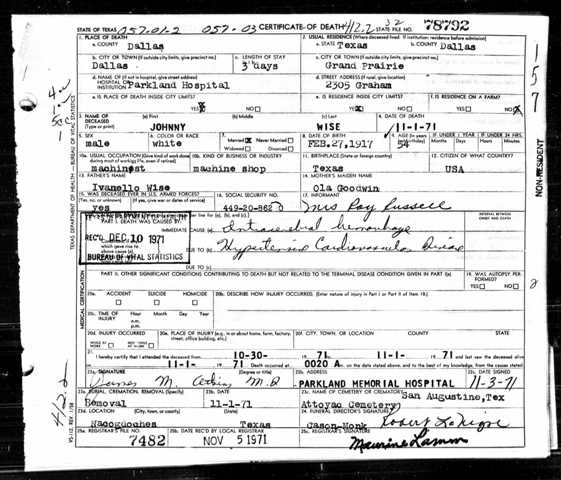 STATE OF TEXAS 057-01-2 057-03 CERTIFICATE OF DEATH 412.2 32 STATE FILE NO. 78792
1. PLACE OF DEATH
a. COUNTY Dallas
2. USUAL RESIDENCE (Where deceased lived. If institution: residence before admission)
a. STATE Texas b. COUNTY Dallas
b. CITY OR TOWN (If outside city limits, give precinct no.) Dallas
c. LENGTH OF STAY 3 days
c. CITY OR TOWN (If outside city limits, give precinct no.) Grand Prairie
d. NAME OF (If not in hospital, give street address) HOSPITAL OR INSTITUTION Parkland Hospital
d. STREET ADDRESS (If rural, give location) 2305 Graham
e. IS PLACE OF DEATH INSIDE CITY LIMITS? YES NO
e. IS RESIDENCE INSIDE CITY LIMITS? YES NO
f. IS RESIDENCE ON A FARM? YES NO
3. NAME OF DECEASED (Type or print)
(a) First JOHNNY
(b) Middle
(c) Last WISE
4. DATE OF DEATH 11-1-71
5. SEX male
6. COLOR OR RACE white
7. Married Never Married Widowed Divorced
8. DATE OF BIRTH FEB.27,1917
9. AGE 54
IF UNDER 1 YEAR Months Days
IF UNDER 24 HRS. Hours Min.
10a. USUAL OCCUPATION (Give kind of work done during most of working life, even if retired) machinest
10b. KIND OF BUSINESS OR INDUSTRY machine shop
11. BIRTHPLACE (State or foreign country) Texas
12. CITIZEN OF WHAT COUNTRY? USA
13. FATHER'S NAME Ivanello Wise
14. MOTHER'S MAIDEN NAME Ola Goodwin
15. WAS DECEASED EVER IN U.S. ARMED FORCES? (Yes, no, or unknown) (If yes, give war or dates of service) yes
16. SOCIAL SECURITY NO. 449-20-8620
17. INFORMANT Mrs Roy Russell
PART I. DEATH WAS CAUSED BY:
IMMEDIATE CAUSE (a) Intracerebral hemorrhage
INTERVAL BETWEEN ONSET AND DEATH
REC'D DEC 10 1971
BUREAU OF VITAL STATISTICS
DUE TO (b) Hypertensive Cardiovascular Disease
DUE TO (c)
PART II. OTHER SIGNIFICANT CONDITIONS CONTRIBUTING TO DEATH BUT NOT RELATED TO THE TERMINAL DISEASE CONDITION GIVEN IN PART I(a)
19. WAS AUTOPSY PERFORMED? YES NO
20a. ACCIDENT SUICIDE HOMICIDE
20b. DESCRIBE HOW INJURY OCCURRED. (Enter nature of injury in Part I or Part II of Item 18.)
20c. TIME OF INJURY Hour Month Day Year a.m. p.m.
20d. INJURY OCCURRED WHILE AT WORK NOT WHILE AT WORK
20e. PLACE OF INJURY (e.g., in or about home, farm, factory, street, office building, etc.)
20f. CITY, TOWN, OR LOCATION COUNTY STATE
21. I hereby certify that I attended the deceased from 10-30- 71 11-1- 71 and last saw the deceased alive
11-1- 71 Death occurred at 0020 A. m. on the date stated above, and to the best of my knowledge, from the causes stated
22a. SIGNATURE (Degree or title) James M. M.D
22b. ADDRESS PARKLAND MEMORIAL HOSPITAL
22c. DATE SIGNED 11-3-71
23a. BURIAL, CREMATION, REMOVAL (Specify) Removal
23b. DATE 11-1-71
23c. NAME OF CEMETERY OR CREMATORY San Augustine,Tex
Attoyac Cemetery
23d. LOCATION (City, town, or county) (State) Nacogdoches Texas
24. FUNERAL DIRECTOR'S SIGNATURE Cason-Monk
25a. REGISTRAR'S FILE NO. 7482
25b. DATE REC'D BY LOCAL REGISTRAR NOV 5 1971
25c. REGISTRAR'S SIGNATURE Maurine Lamm
TEXAS DEPARTMENT OF HEALTH - BUREAU OF VITAL STATISTICS
MEDICAL CERTIFICATION
412.2
157
NON-RESIDENT
2